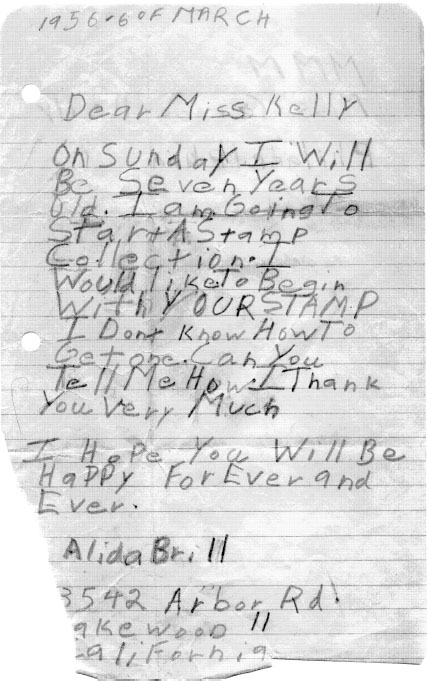 1956-6 OF MARCH
Dear Miss Kelly
On Sunday I Will
Be Seven Years
Old. I am Going To
Start A Stamp
Collection. I
Would Like To Begin
With YOUR STAMP
I Dont Know How To
Get one. Can You
Tell Me How. I Thank
You Very Much
I Hope You Will Be
Happy For Ever and
Ever.
Alida Brill
3542 Arbor Rd.
akewood 11
California